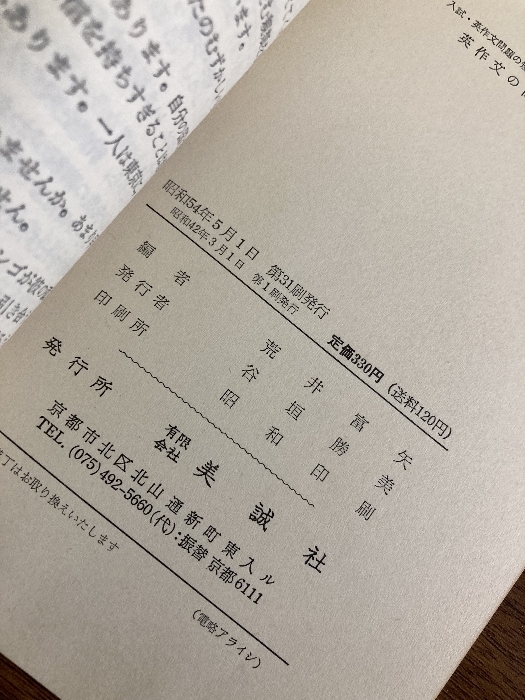 入試・英作文問題の
英作文の
昭和54年5月1日 第31刷発行
昭和42年3月1日 第1刷発行
定価330円(送料120円)
編者 荒井富矢
発行者 谷垣勝美
印刷所 昭和印刷
発行所 有限会社 美誠社
京都市北区北山通新町東入ル
TEL.(075)492-5660(代):振替京都6111
丁はお取り換えいたします
(電略アライシ)
あります。
たのむずかし
信を持ちすぎることに
あります。一人は東京に
ませんか。
せん。